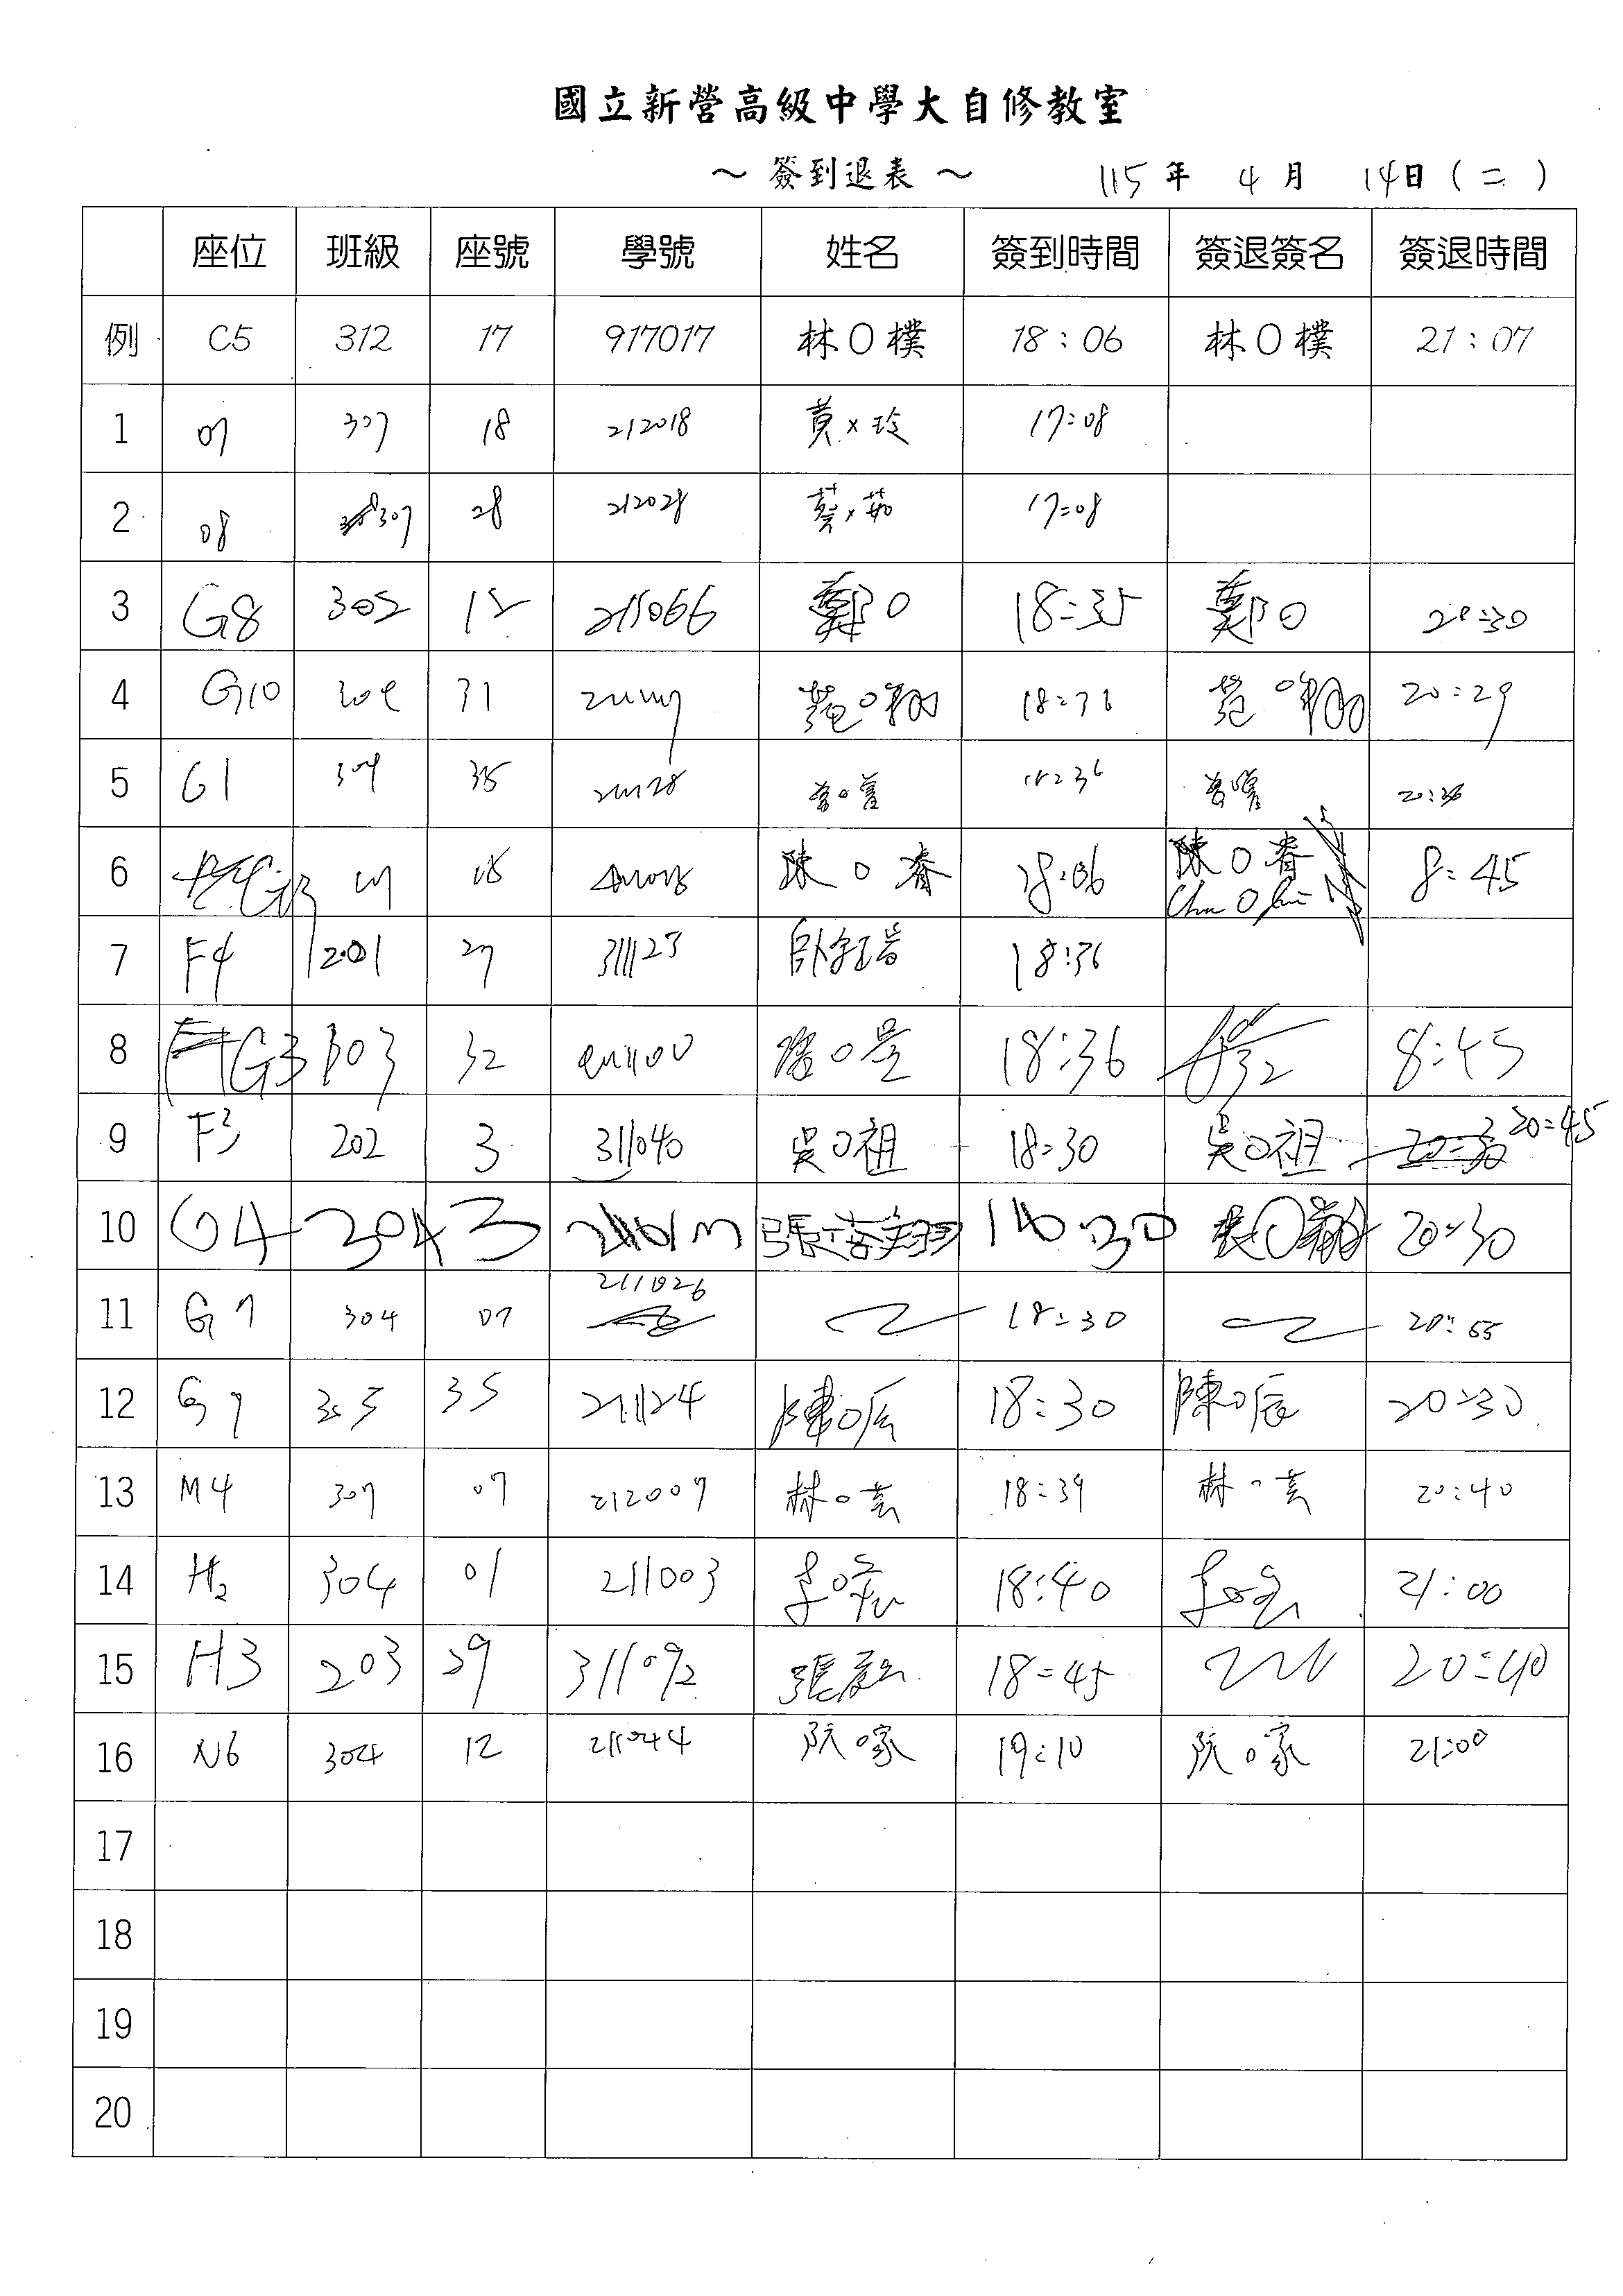 國立新營高級中學大自修教室
～ 簽到退表 ～ 115 年 4 月 14 日 ( 二 )
座位 班級 座號 學號 姓名 簽到時間 簽退簽名 簽退時間
例 C5 312 17 917017 林O樸 18:06 林O樸 21:07
1 07 307 18 212018 黃x玲 17:08
2 08 307 28 212028 蔡x茹 17:08
3 G8 305 15 211066 鄭O 18:35 鄭O 20:30
4 G10 31 18:36 20:29
5 G1 304 35 18:36 20:36
6 18:06 陳O睿 8:45
7 F4 1201 27 311123 18:36
8 G3 303 32 18:36 8:45
9 F3 202 3 311040 吳O祖 18:30 吳O祖 20:45
10 G4 304 3 20:30
11 G7 304 07 211026 18:30 20:55
12 G9 305 35 211124 陳O辰 18:30 陳O辰 20:30
13 M4 307 07 212007 林O芸 18:39 林O芸 20:40
14 H2 304 01 211003 18:40 21:00
15 H3 203 29 311092 18:45 20:40
16 N6 304 12 211044 阮O家 19:10 阮O家 21:00
17
18
19
20